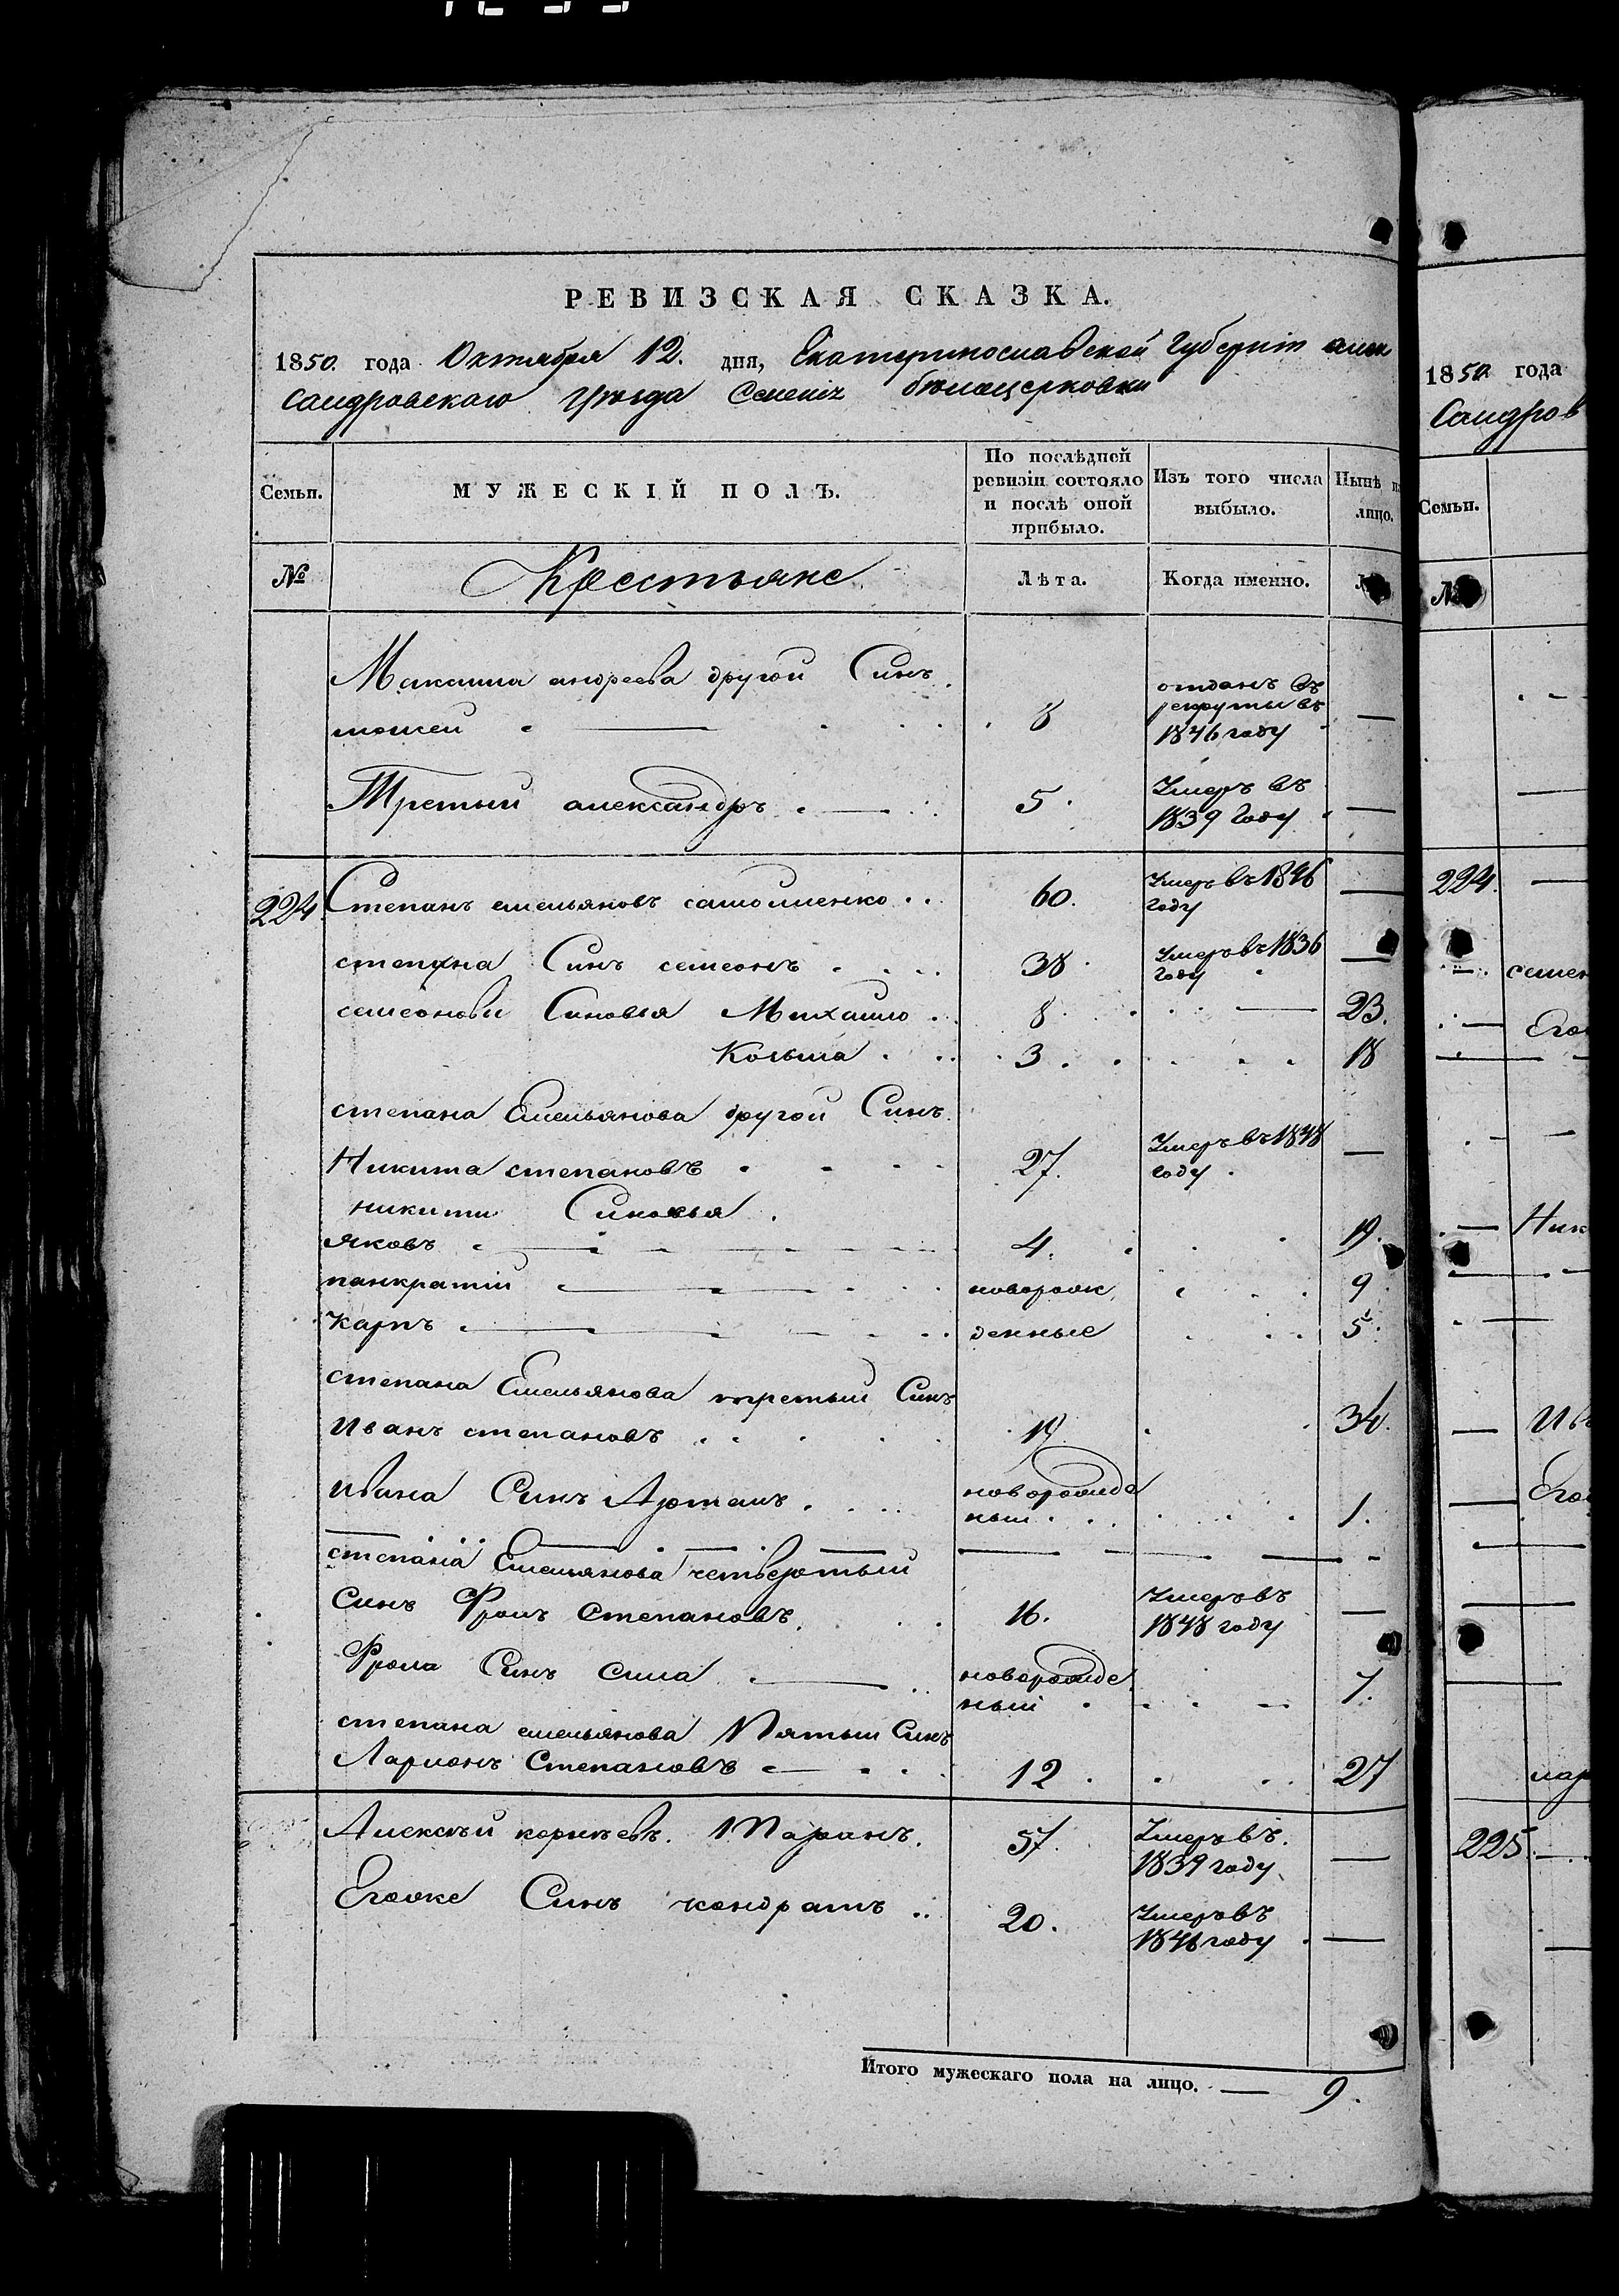 РЕВИЗСКАЯ СКАЗКА.
1850. года Октября 12. дня, Екатеринославской Губерніи алек
сандровскаго уѣзда Селеніе бѣлоцерковки
Семьи.
МУЖЕСКІЙ ПОЛЪ.
По послѣдней ревизіи состояло и послѣ оной прибыло.
Изъ того числа выбыло.
Нынѣ на лицо.
№
Крестьяне
Лѣта.
Когда именно.
Максима андреева другой Синъ
8 отданъ въ рекруты въ 1846 году —
Третий александръ 5. Умеръ въ 1839 Году —
224 Степанъ емельяновъ самойленко 60. Умеръ въ 1846 году —
степана Синъ семеонъ 38 Умеръ въ 1836 году —
семеонови Синовья Михайло 8 23.
Козьма 3 18
степана Емельянова другой Синъ
Никита степановъ 27. Умеръ въ 1848 году —
никити Синовья
яковъ 4. 19.
панкратій новорож 9
карпъ денные 5.
степана Емельянова третий Синъ
Иванъ степановъ 19 34.
ивана Синъ Артемъ новорожде ный 1.
степана Емельянова четвертый
Синъ Фролъ Степановъ 16. Умеръ въ 1848 году —
Фрола Синъ Сила новорожде ный 7.
степана емельянова Пятый Синъ
Ларионъ Степановъ 12 27
Алексѣй корнѣевъ Таранъ. 57. Умеръ въ 1839 году —
Еговже Синъ кондратъ 20. Умеръ въ 1846 году —
Итого мужескаго пола на лицо. — 9.
1850 года
Сандров
Семьи.
№
224.
семен
Его
Ник
Ив
Его
лар
225.